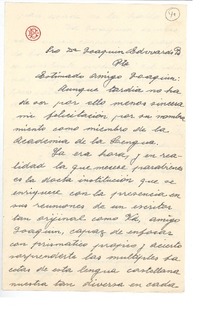 Sr. Dn. Joaquin Edwards B
Pte
Estimado amigo Joaquin:
Aunque tardia no ha
de ser por ello menos sincera
mi felicitacion, por su nombra
miento como miembro de la
Academia de la Lengua.
Ya era hora, y en rea-
lidad la que merece parabienes
es la docta institución que se
enriquece con la presencia en
sus reuniones de un escritor
tan original como Ud, amigo
Joaquin, capaz de enfocar
con prismatico propio, y acierto
sorprendente las multiples fa
cetas de esta lengua castellana
nuestra tan diversa en cada